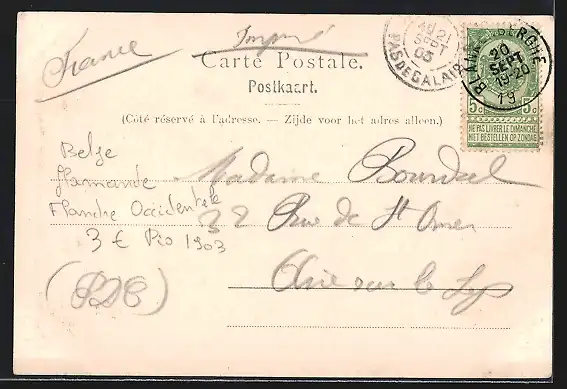 France
Imprimé
Carte Postale.
Postkaart.
(Côté réservé à l'adresse. — Zijde voor het adres alleen.)
21
SEPT
03
PAS DE CALAIS
BLANKENBERGHE
20
SEPT
19-20
5c 5c
NE PAS LIVRER LE DIMANCHE
NIET BESTELLEN OP ZONDAG
Belge
flamande
Flandre Occidentale
3 € Pio 1903
(PDC)
Madame Bourdel
32 Rue de St Omer
Aire sur la Lys